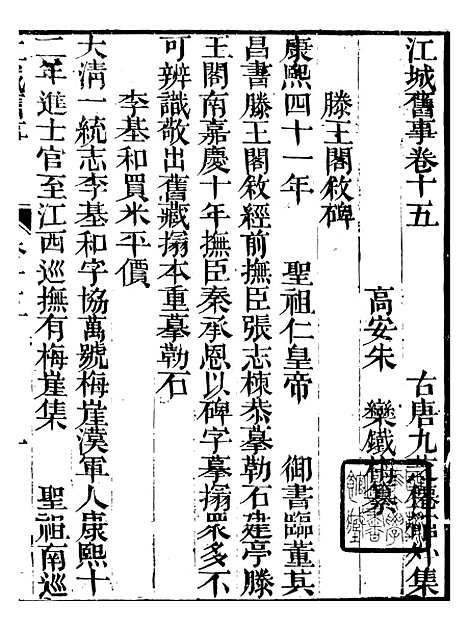 江城舊事卷十五
古唐九 集
高安朱 欒鐵梅纂
滕王閣敘碑
康熙四十一年 聖祖仁皇帝 御書臨董其
昌書滕王閣敘經前撫臣張志棟恭摹勒石建亭滕
王閣南嘉慶十年撫臣秦承恩以碑字摹搨眾多不
可辨識敬出舊藏搨本重摹勒石
李基和買米平價
大清一統志李基和字協萬號梅崖漢軍人康熙十
二年進士官至江西巡撫有梅崖集 聖祖南巡